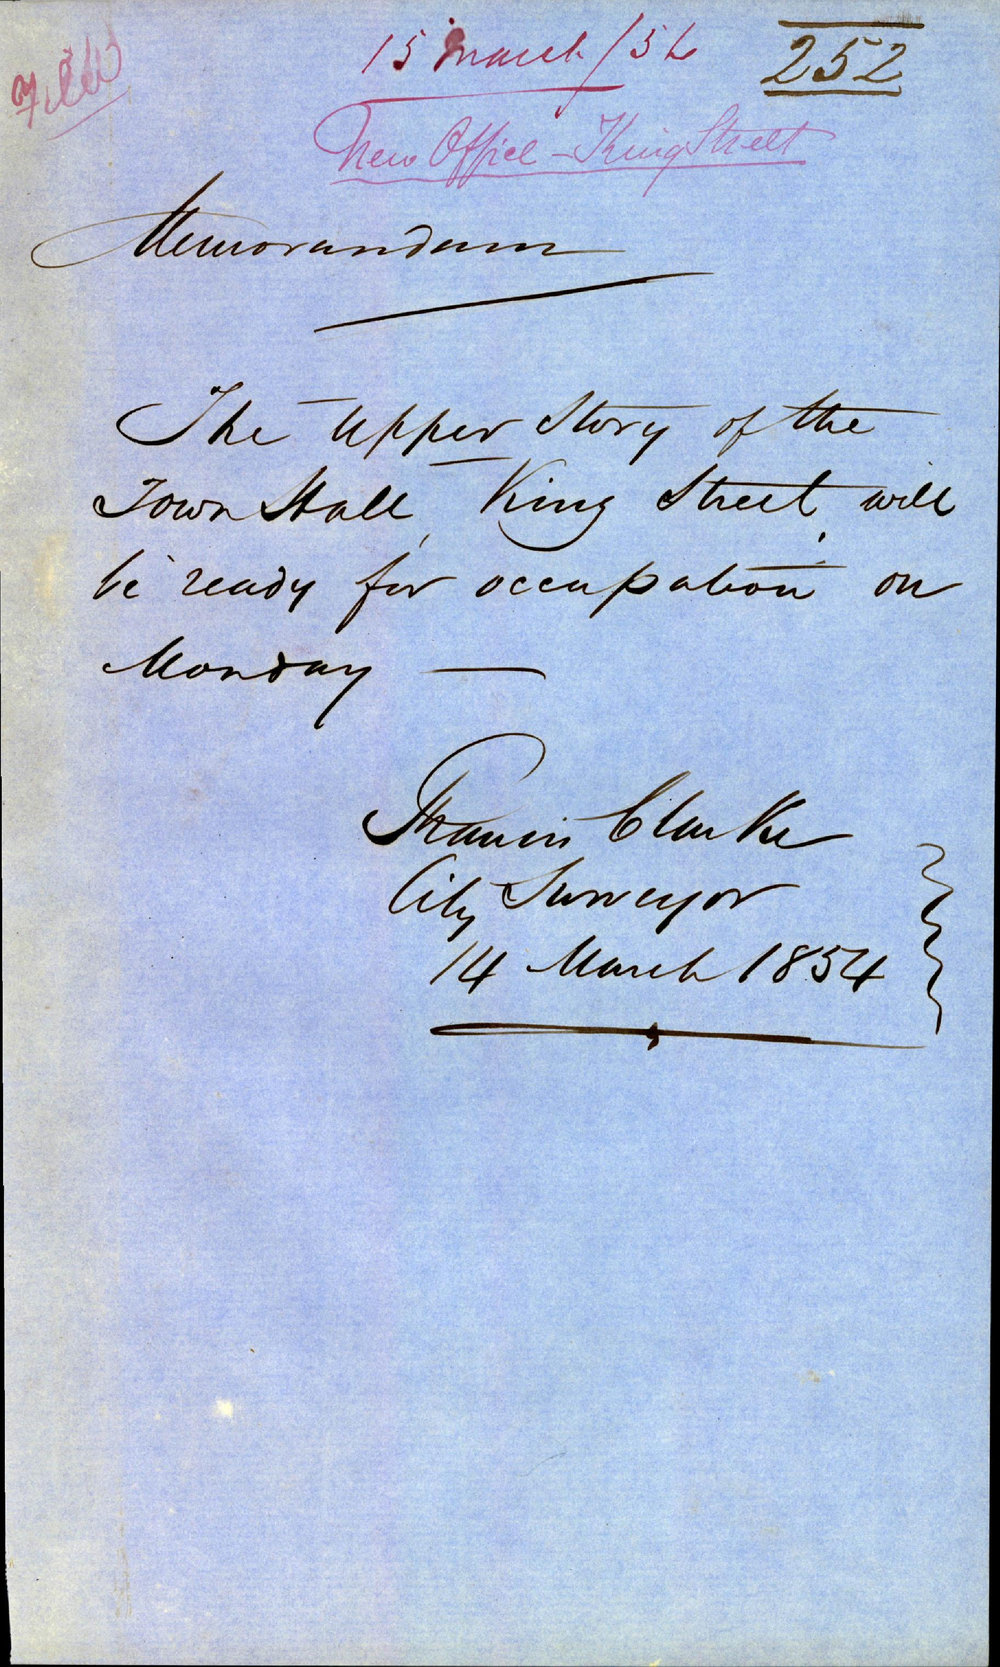 Filed
15 March/54
252
New Office - King Street
Memorandum
The Upper Story of the
Town Hall, King Street, will
be ready for occupation on
Monday —
Francis Clarke
City Surveyor
14 March 1854